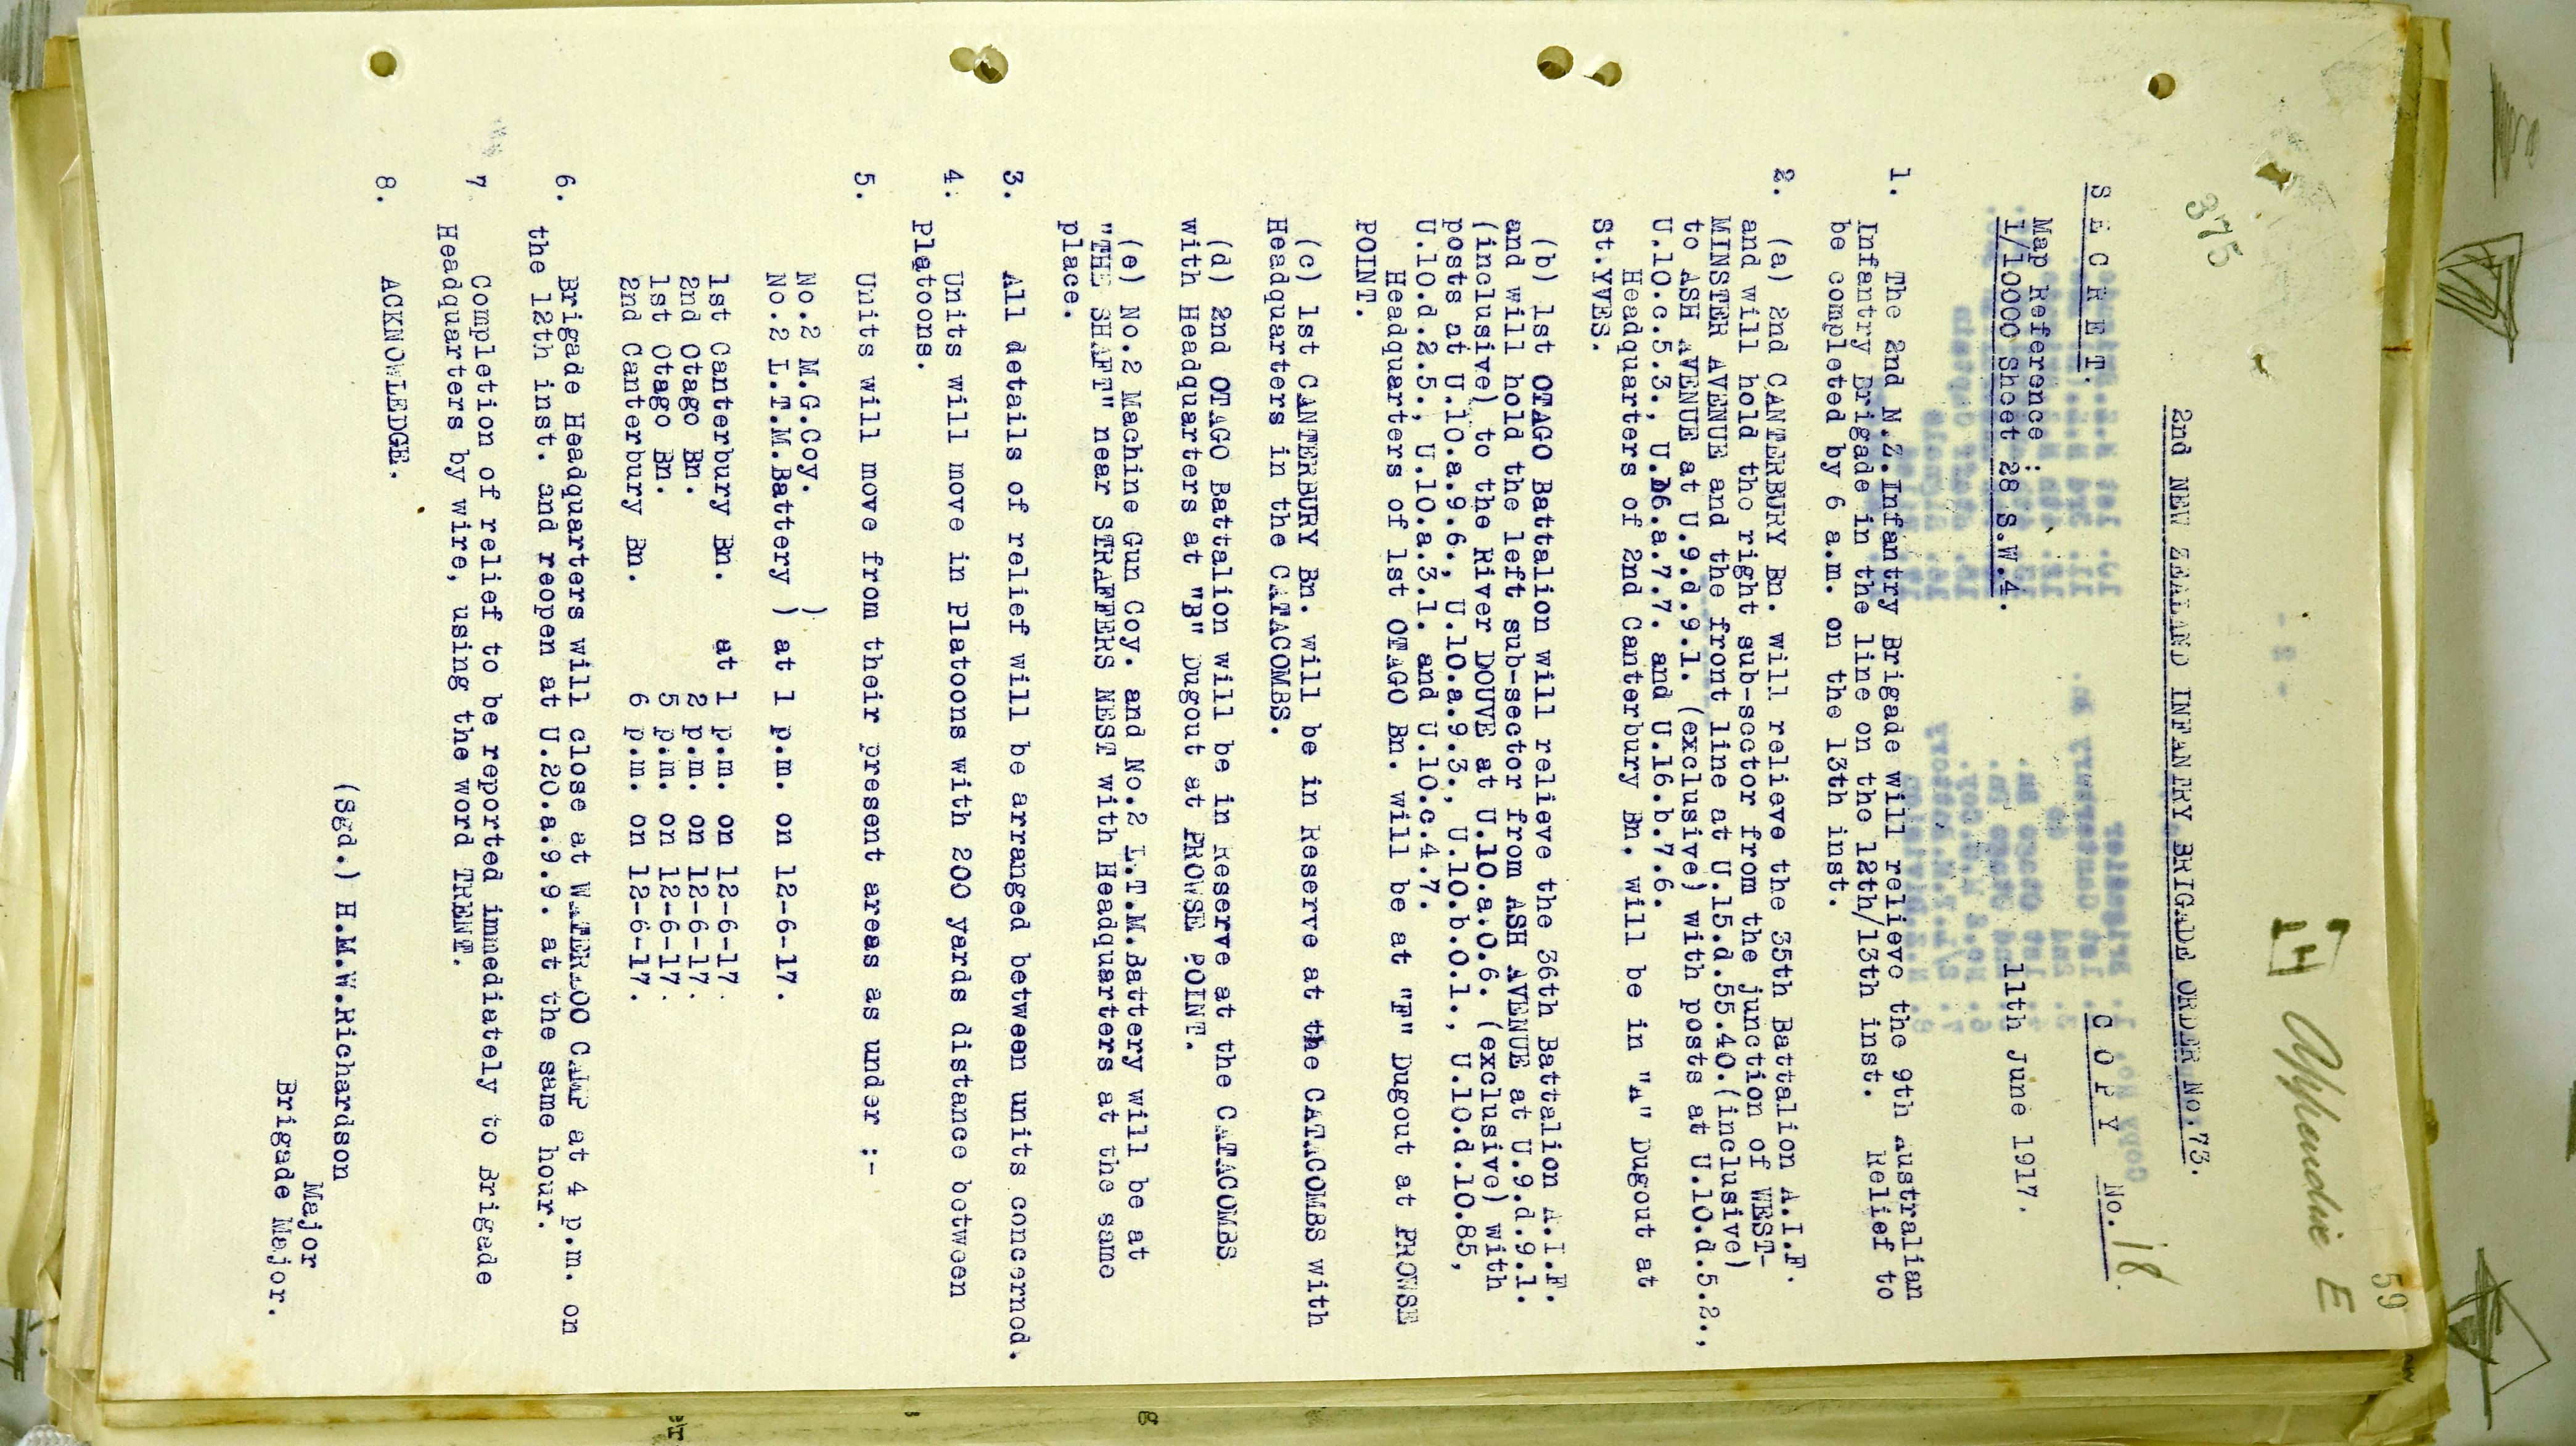 59
14 Appendix E
375
2nd NEW ZEALAND INFANTRY BRIGADE ORDER No.73.
S E C R E T.
C O P Y No. 18
Map Reference :
1/10000 Sheet 28 S.W.4.
11th June 1917.
1. The 2nd N.Z.Infantry Brigade will relieve the 9th Australian
Infantry Brigade in the line on the 12th/13th inst. Relief to
be completed by 6 a.m. on the 13th inst.
2. (a) 2nd CANTERBURY Bn. will relieve the 35th Battalion A.I.F.
and will hold the right sub-sector from the junction of WEST-
MINSTER AVENUE and the front line at U.15.d.55.40.(inclusive)
to ASH AVENUE at U.9.d.9.1. (exclusive) with posts at U.10.d.5.2.,
U.10.c.5.3., U.16.a.7.7. and U.16.b.7.6.
Headquarters of 2nd Canterbury Bn. will be in "A" Dugout at
St.YVES.
(b) 1st OTAGO Battalion will relieve the 36th Battalion A.I.F.
and will hold the left sub-sector from ASH AVENUE at U.9.d.9.1.
(inclusive) to the River DOUVE at U.10.a.0.6. (exclusive) with
posts at U.10.a.9.6., U.10.a.9.3., U.10.b.0.1., U.10.d.10.85,
U.10.d.2.5., U.10.a.3.1. and U.10.c.4.7.
Headquarters of 1st OTAGO Bn. will be at "F" Dugout at PROWSE
POINT.
(c) 1st CANTERBURY Bn. will be in Reserve at the CATACOMBS with
Headquarters in the CATACOMBS.
(d) 2nd OTAGO Battalion will be in Reserve at the CATACOMBS
with Headquarters at "B" Dugout at PROWSE POINT.
(e) No.2 Machine Gun Coy. and No.2 L.T.M.Battery will be at
"THE SHAFT" near STRAFFERS NEST with Headquarters at the same
place.
3. All details of relief will be arranged between units concerned.
4. Units will move in Platoons with 200 yards distance between
Platoons.
5. Units will move from their present areas as under :-
No.2 M.G.Coy. )
No.2 L.T.M.Battery ) at 1 p.m. on 12-6-17.
1st Canterbury Bn. at 1 p.m. on 12-6-17
2nd Otago Bn. 2 p.m. on 12-6-17.
1st Otago Bn. 5 p.m. on 12-6-17.
2nd Canterbury Bn. 6 p.m. on 12-6-17.
6. Brigade Headquarters will close at WATERLOO CAMP at 4 p.m. on
the 12th inst. and reopen at U.20.a.9.9. at the same hour.
7 Completion of relief to be reported immediately to Brigade
Headquarters by wire, using the word TRENT.
8. ACKNOWLEDGE.
(Sgd.) H.M.W.Richardson
Major
Brigade Major.